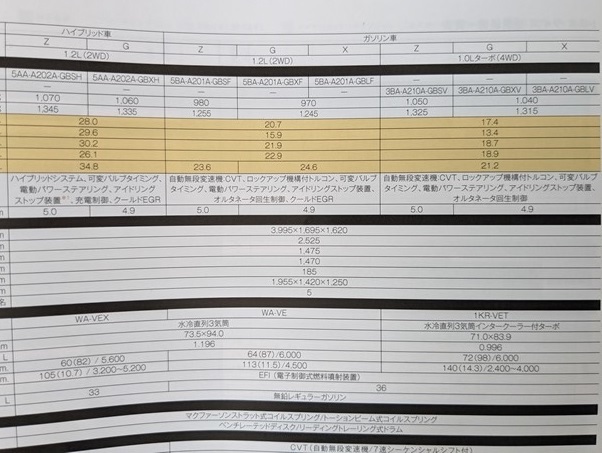 ハイブリッド車 ガソリン車
Z G Z G X Z G X
1.2L(2WD) 1.2L(2WD) 1.0Lターボ(4WD)
5AA-A202A-GBSH 5AA-A202A-GBXH 5BA-A201A-GBSF 5BA-A201A-GBXF 5BA-A201A-GBLF — — —
— — — — — 3BA-A210A-GBSV 3BA-A210A-GBXV 3BA-A210A-GBLV
1,070 1,060 980 970 1,050 1,040
1,345 1,335 1,255 1,245 1,325 1,315
28.0 20.7 17.4
29.6 15.9 13.4
30.2 21.9 18.7
26.1 22.9 18.9
34.8 23.6 24.6 21.2
ハイブリッドシステム、可変バルブタイミング、 自動無段変速機CVT、ロックアップ機構付トルコン、可変バルブ 自動無段変速機:CVT、ロックアップ機構付トルコン、可変バルブ
電動パワーステアリング、アイドリング タイミング、電動パワーステアリング、アイドリングストップ装置、 タイミング、電動パワーステアリング、アイドリングストップ装置、
ストップ装置、充電制御、クールドEGR オルタネータ回生制御、クールドEGR オルタネータ回生制御
m 5.0 4.9 5.0 4.9 5.0 4.9
m 3,995×1,695×1,620
m 2,525
m 1,475
m 1,470
m 185
m 1,955×1,420×1,250
名 5
WA-VEX WA-VE 1KR-VET
水冷直列3気筒 水冷直列3気筒インタークーラー付ターボ
73.5×94.0 71.0×83.9
L 1.196 0.996
60(82)/5,600 64(87)/6,000 72(98)/6,000
105(10.7)/3,200~5,200 113(11.5)/4,500 140(14.3)/2,400~4,000
EFI(電子制御式燃料噴射装置)
L 33 36
無鉛レギュラーガソリン
マクファーソンストラット式コイルスプリング/トーションビーム式コイルスプリング
ベンチレーテッドディスク/リーディングトレーリング式ドラム
CVT(自動無段変速機/7速シーケンシャルシフト付)